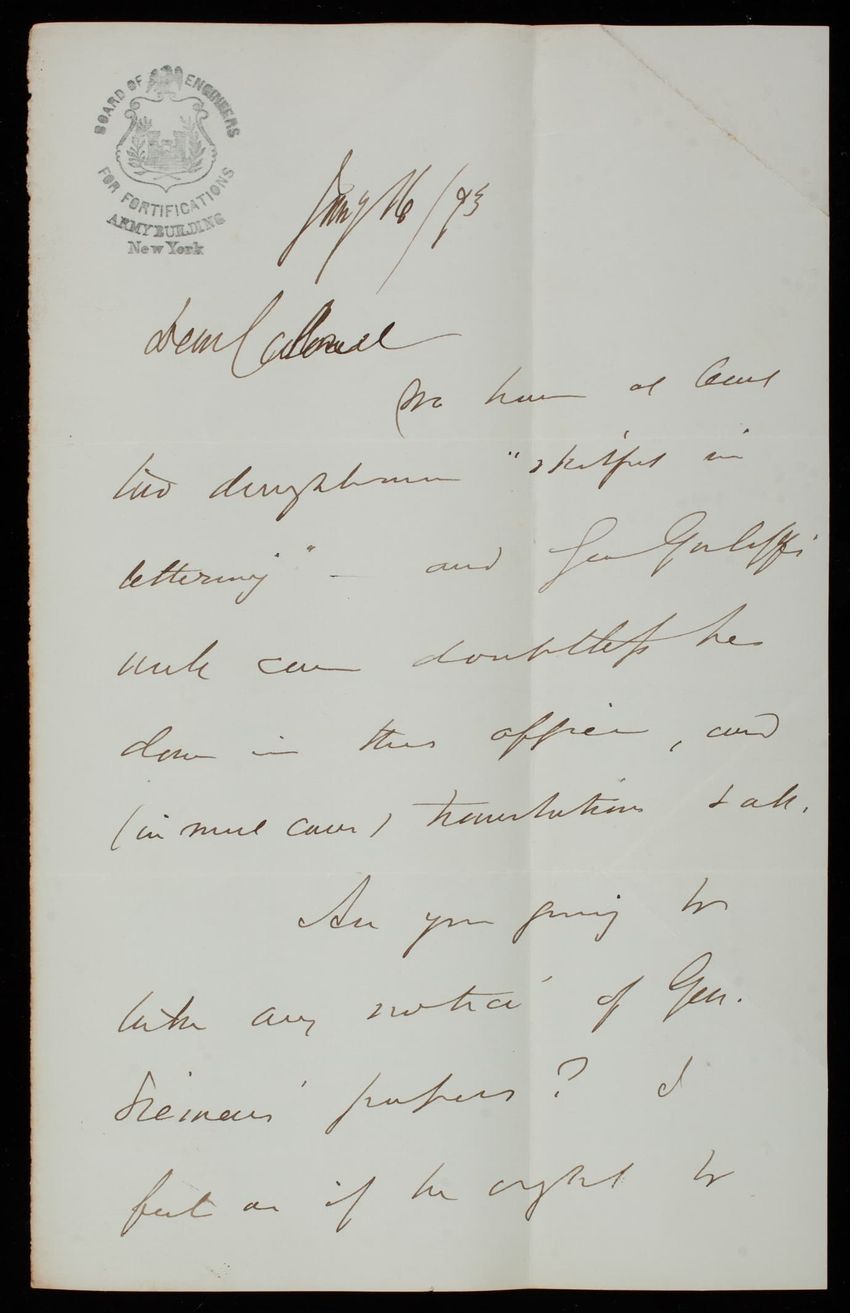 BOARD OF ENGINEERS
FOR FORTIFICATIONS
ARMY BUILDING
New York
Jany 16/93
Dear Colonel
We have at least
two draughtsmen "skilful in
lettering" — and Gen
work can doubtless be
done in this office, and
(in most cases) translations & all.
Are you going to
take any notice of Gen.
papers? I
feel as if he ought to